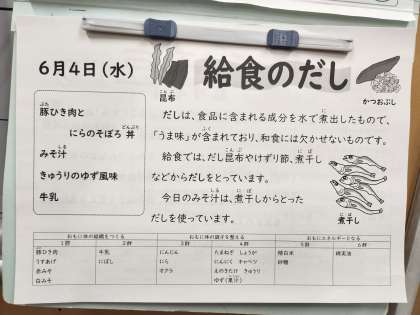 6月4日(水)
給食のだし
こんぶ
昆布
かつおぶし
ぶた
豚ひき肉と
どんぶり
にらのそぼろ丼
しる
みそ汁
きゅうりのゆず風味
牛乳
にだ
だしは、食品に含まれる成分を水で煮出したもので、
ふく
「うま味」が含まれており、和食には欠かせないものです。
こんぶ にぼ
給食では、だし昆布やけずり節、煮干し
などからだしをとっています。
しる にぼ
今日のみそ汁は、煮干しからとった
だしを使っています。
にぼ
煮干し
おもに体の組織をつくる おもに体の調子を整える おもにエネルギーとなる
1群 2群 3群 4群 5群 6群
豚ひき肉 牛乳 にんじん たまねぎ しょうが 精白米 綿実油
うすあげ にぼし にら にんにく キャベツ 砂糖
赤みそ オクラ えのきたけ きゅうり
白みそ ゆず(果汁)